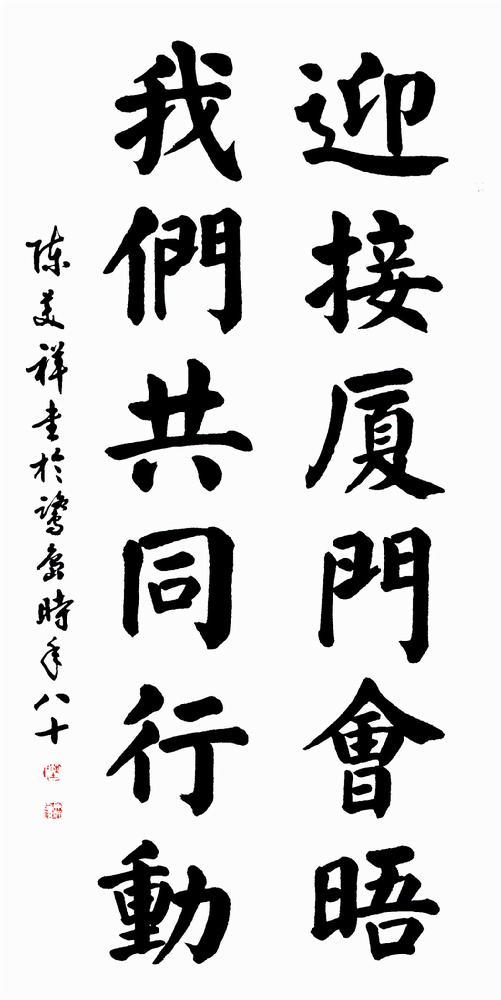 迎接厦門會晤
我們共同行動
陈美祥书於鹭岛時年八十